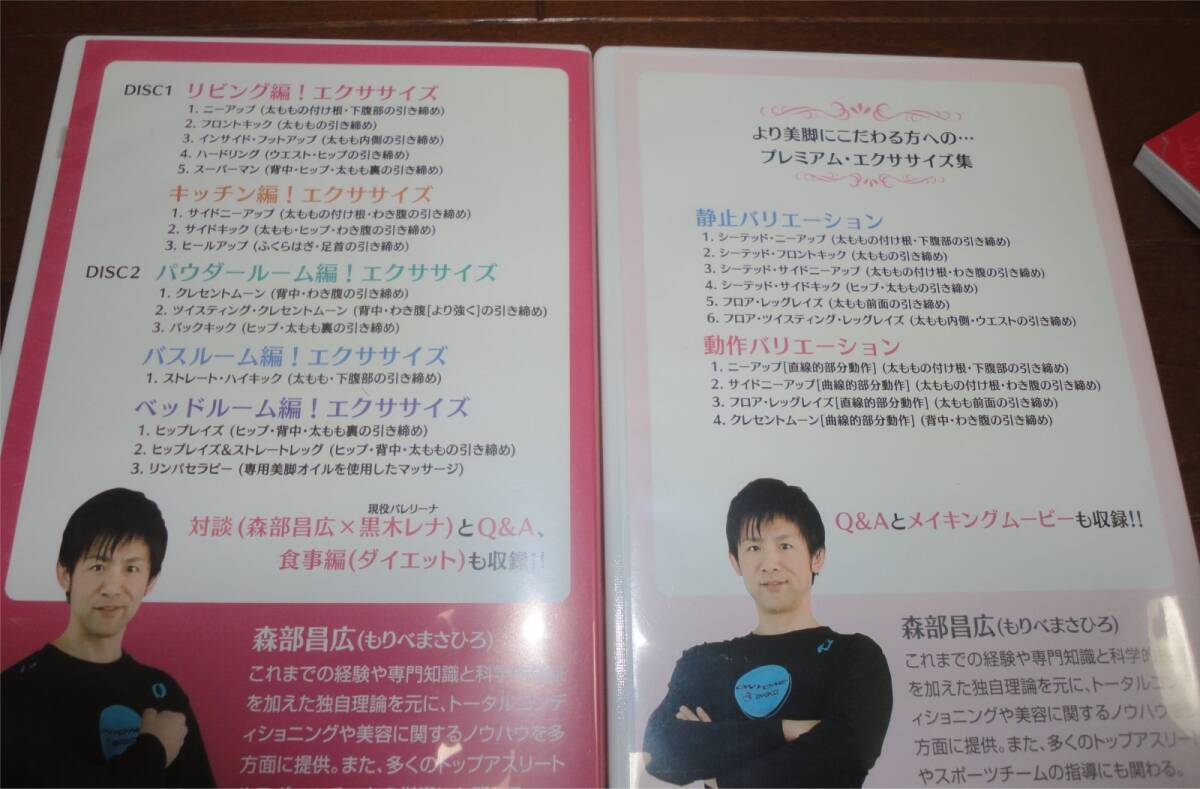 DISC1 リビング編！エクササイズ
1. ニーアップ (太ももの付け根・下腹部の引き締め)
2. フロントキック (太ももの引き締め)
3. インサイド・フットアップ (太もも内側の引き締め)
4. ハードリング (ウエスト・ヒップの引き締め)
5. スーパーマン (背中・ヒップ・太もも裏の引き締め)
キッチン編！エクササイズ
1. サイドニーアップ (太ももの付け根・わき腹の引き締め)
2. サイドキック (太もも・ヒップ・わき腹の引き締め)
3. ヒールアップ (ふくらはぎ・足首の引き締め)
DISC2 パウダールーム編！エクササイズ
1. クレセントムーン (背中・わき腹の引き締め)
2. ツイスティング・クレセントムーン (背中・わき腹[より強く]の引き締め)
3. バックキック (ヒップ・太もも裏の引き締め)
バスルーム編！エクササイズ
1. ストレート・ハイキック (太もも・下腹部の引き締め)
ベッドルーム編！エクササイズ
1. ヒップレイズ (ヒップ・背中・太もも裏の引き締め)
2. ヒップレイズ&ストレートレッグ (ヒップ・背中・太ももの引き締め)
3. リンパセラピー (専用美脚オイルを使用したマッサージ)
現役バレリーナ
対談(森部昌広×黒木レナ)とQ&A、
食事編(ダイエット)も収録!!
森部昌広(もりべまさひろ)
これまでの経験や専門知識と科学的
を加えた独自理論を元に、トータルコンデ
ィショニングや美容に関するノウハウを多
方面に提供。また、多くのトップアスリート
より美脚にこだわる方への…
プレミアム・エクササイズ集
静止バリエーション
1. シーテッド・ニーアップ (太ももの付け根・下腹部の引き締め)
2. シーテッド・フロントキック (太ももの引き締め)
3. シーテッド・サイドニーアップ (太ももの付け根・わき腹の引き締め)
4. シーテッド・サイドキック (ヒップ・太ももの引き締め)
5. フロア・レッグレイズ (太もも前面の引き締め)
6. フロア・ツイスティング・レッグレイズ (太もも内側・ウエストの引き締め)
動作バリエーション
1. ニーアップ[直線的部分動作] (太ももの付け根・下腹部の引き締め)
2. サイドニーアップ[曲線的部分動作] (太ももの付け根・わき腹の引き締め)
3. フロア・レッグレイズ[直線的部分動作] (太もも前面の引き締め)
4. クレセントムーン[曲線的部分動作] (背中・わき腹の引き締め)
Q&Aとメイキングムービーも収録!!
森部昌広(もりべまさひろ)
これまでの経験や専門知識と科学的
を加えた独自理論を元に、トータルコンデ
ィショニングや美容に関するノウハウ
方面に提供。また、多くのトップアスリート
やスポーツチームの指導にも関わる。